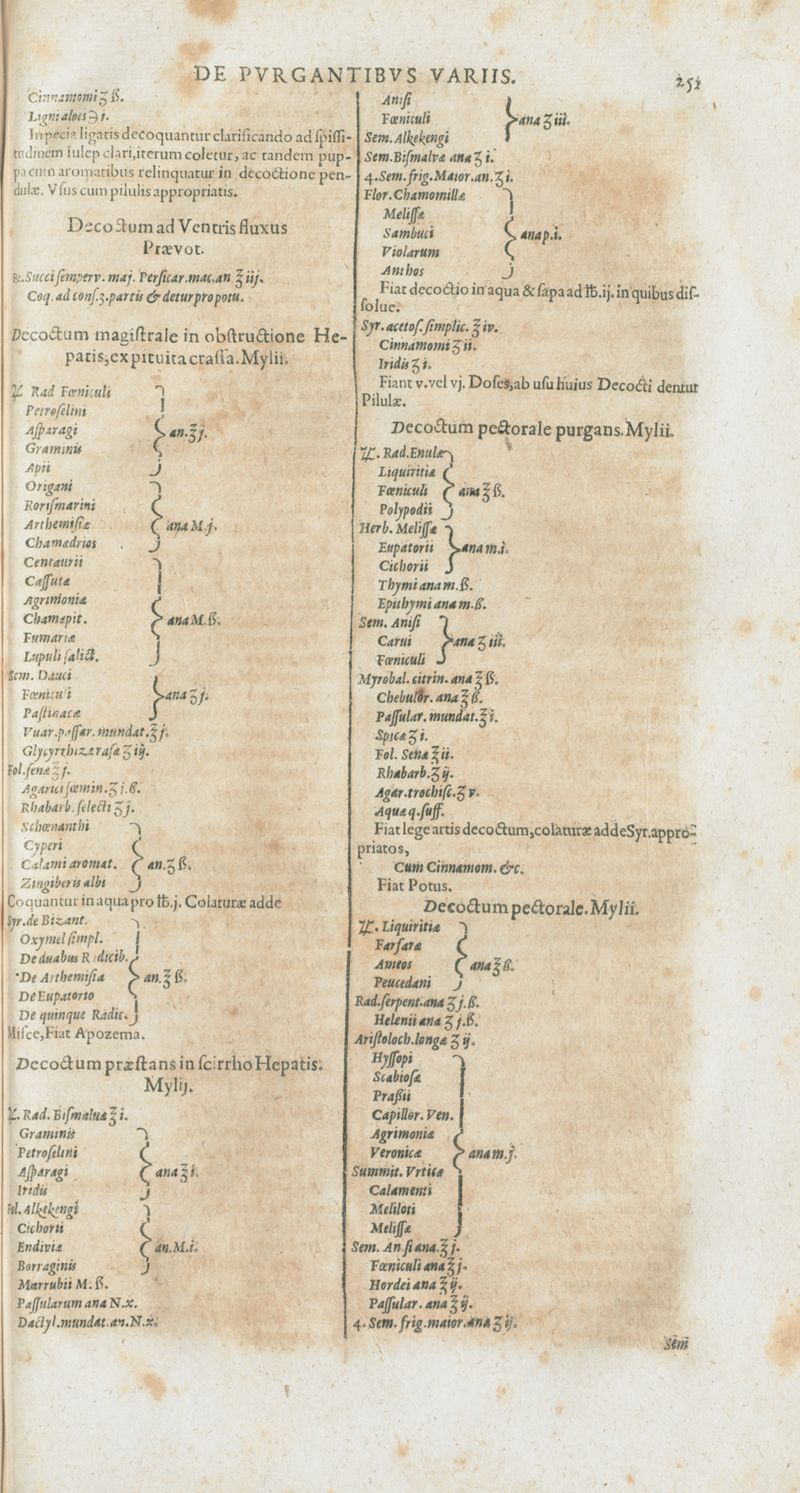 DE PVRGANTIBVS VARIIS.
251
Cinnamomi ʒ ß.
Ligni aloes ℈ 1.
In pecia ligatis decoquantur clarificando ad spissi-
tudinem iulep clari, iterum coletur, ac tandem pup-
pa cum aromatibus relinquatur in decoctione pen-
dulæ. Vsus cum pilulis appropriatis.
Decoctum ad Ventris fluxus
Prævot.
℞. Succi semperv. maj. Persicar. mac. an ℥ iij.
Coq. ad cons. 3. partis & detur pro potu.
Decoctum magistrale in obstructione He-
patis, ex pituita crassa. Mylii.
℞ Rad Fœniculi
Petroselini
Asparagi } an. ℥ j.
Graminis
Apii
Origani
Rorismarini
Arthemisiæ } ana M. j.
Chamædrios
Centaurii
Cassutæ
Agrimoniæ
Chamæpit. } ana M. ß.
Fumariæ
Lupuli salict.
Sem. Dauci
Fœniculi } ana ʒ j.
Pastinacæ
Vuar. passar. mundat. ℥ j.
Glycyrrhizæ rasæ ʒ iij.
Fol. senæ ℥ j.
Agarici fœmin. ʒ j. ß.
Rhabarb. selecti ʒ j.
Schœnanthi
Cyperi
Calami aromat. } an. ʒ ß.
Zingiberis albi
Coquantur in aqua pro ℔. j. Colaturæ adde
Syr. de Bizant.
Oxymel simpl.
De duabus Radicib.
De Arthemisia } an. ℥ ß.
De Eupatorio
De quinque Radic.
Misce, Fiat Apozema.
Decoctum præstans in scirrho Hepatis.
Mylij.
℞. Rad. Bismaluæ ℥ i.
Graminis
Petroselini
Asparagi } ana ℥ i.
Iridis
Fol. Alkekengi
Cichorii
Endiviæ } an. M. i.
Borraginis
Marrubii M. ß.
Passularum ana N. x.
Dactyl. mundat. an. N. x.
Anisi
Fœniculi } ana ʒ iii.
Sem. Alkekengi
Sem. Bismalvæ ana ʒ i.
4. Sem. frig. Maior. an. ʒ i.
Flor. Chamomillæ
Melissæ
Sambuci } ana p. i.
Violarum
Anthos
Fiat decoctio in aqua & sapa ad ℔. ij. in quibus dis-
solue.
Syr. acetos. simplic. ℥ iv.
Cinnamomi ʒ ii.
Iridis ʒ i.
Fiant v. vel vj. Doses, ab usu huius Decocti dentur
Pilulæ.
Decoctum pectorale purgans. Mylii.
℞. Rad. Enulæ
Liquiritiæ
Fœniculi } ana ℥ ß.
Polypodii
Herb. Melissæ
Eupatorii } ana m. i.
Cichorii
Thymi ana m. ß.
Epithymi ana m. ß.
Sem. Anisi
Carui } ana ʒ iii.
Fœniculi
Myrobal. citrin. ana ℥ ß.
Chebulor. ana ℥ ß.
Passular. mundat. ℥ i.
Spicæ ʒ i.
Fol. Senæ ℥ ii.
Rhabarb. ʒ ij.
Agar. trochisc. ʒ v.
Aquæ q. suff.
Fiat lege artis decoctum, colaturæ adde Syr. appro-
priatos,
Cum Cinnamom. &c.
Fiat Potus.
Decoctum pectorale. Mylii.
℞. Liquiritiæ
Farfaræ
Ameos } ana ℥ ß.
Peucedani
Rad. serpent. ana ʒ j. ß.
Helenii ana ʒ j. ß.
Aristoloch. longæ ʒ ij.
Hyssopi
Scabiosæ
Praßii
Capillor. Ven.
Agrimoniæ
Veronicæ } ana m. j.
Summit. Vrticæ
Calamenti
Meliloti
Melissæ
Sem. Anisi ana. ℥ j.
Fœniculi ana ℥ j.
Hordei ana ℥ ij.
Passular. ana ℥ ij.
4. Sem. frig. maior. ana ʒ ij.
Sem